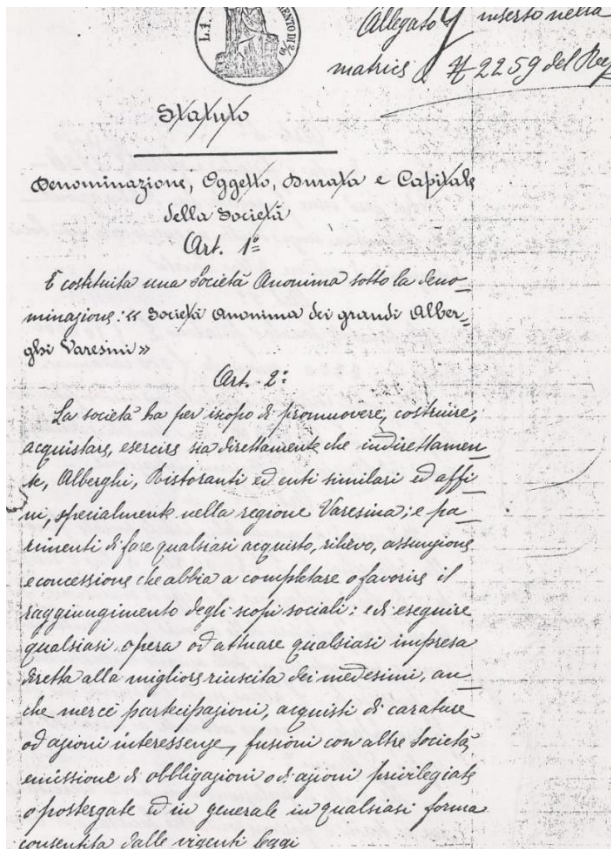 L.1.
Allegato Y inserto nella
matrice N 2259 del Rep
Statuto
Denominazione, Oggetto, Durata e Capitale
della Società
Art. 1º
È costituita una Società Anonima sotto la deno-
minazione: « Società Anonima dei grandi Alber-
ghi Varesini »
Art. 2º
La società ha per iscopo di promuovere, costruire,
acquistare, esercire sia direttamente che indirettamen-
te, Alberghi, Ristoranti ed enti similari ed affi-
ni, specialmente nella regione Varesina; e pa-
rimenti di fare qualsiasi acquisto, rilievo, assunzione
e concessione che abbia a completare o favorire il
raggiungimento degli scopi sociali: e di eseguire
qualsiasi opera od attuare qualsiasi impresa
diretta alla migliore riuscita dei medesimi, an-
che mercè partecipazioni, acquisti di carature
od azioni interessenze, fusioni con altre Società,
emissione di obbligazioni o di azioni privilegiate
o postergate ed in generale in qualsiasi forma
consentita dalle vigenti leggi